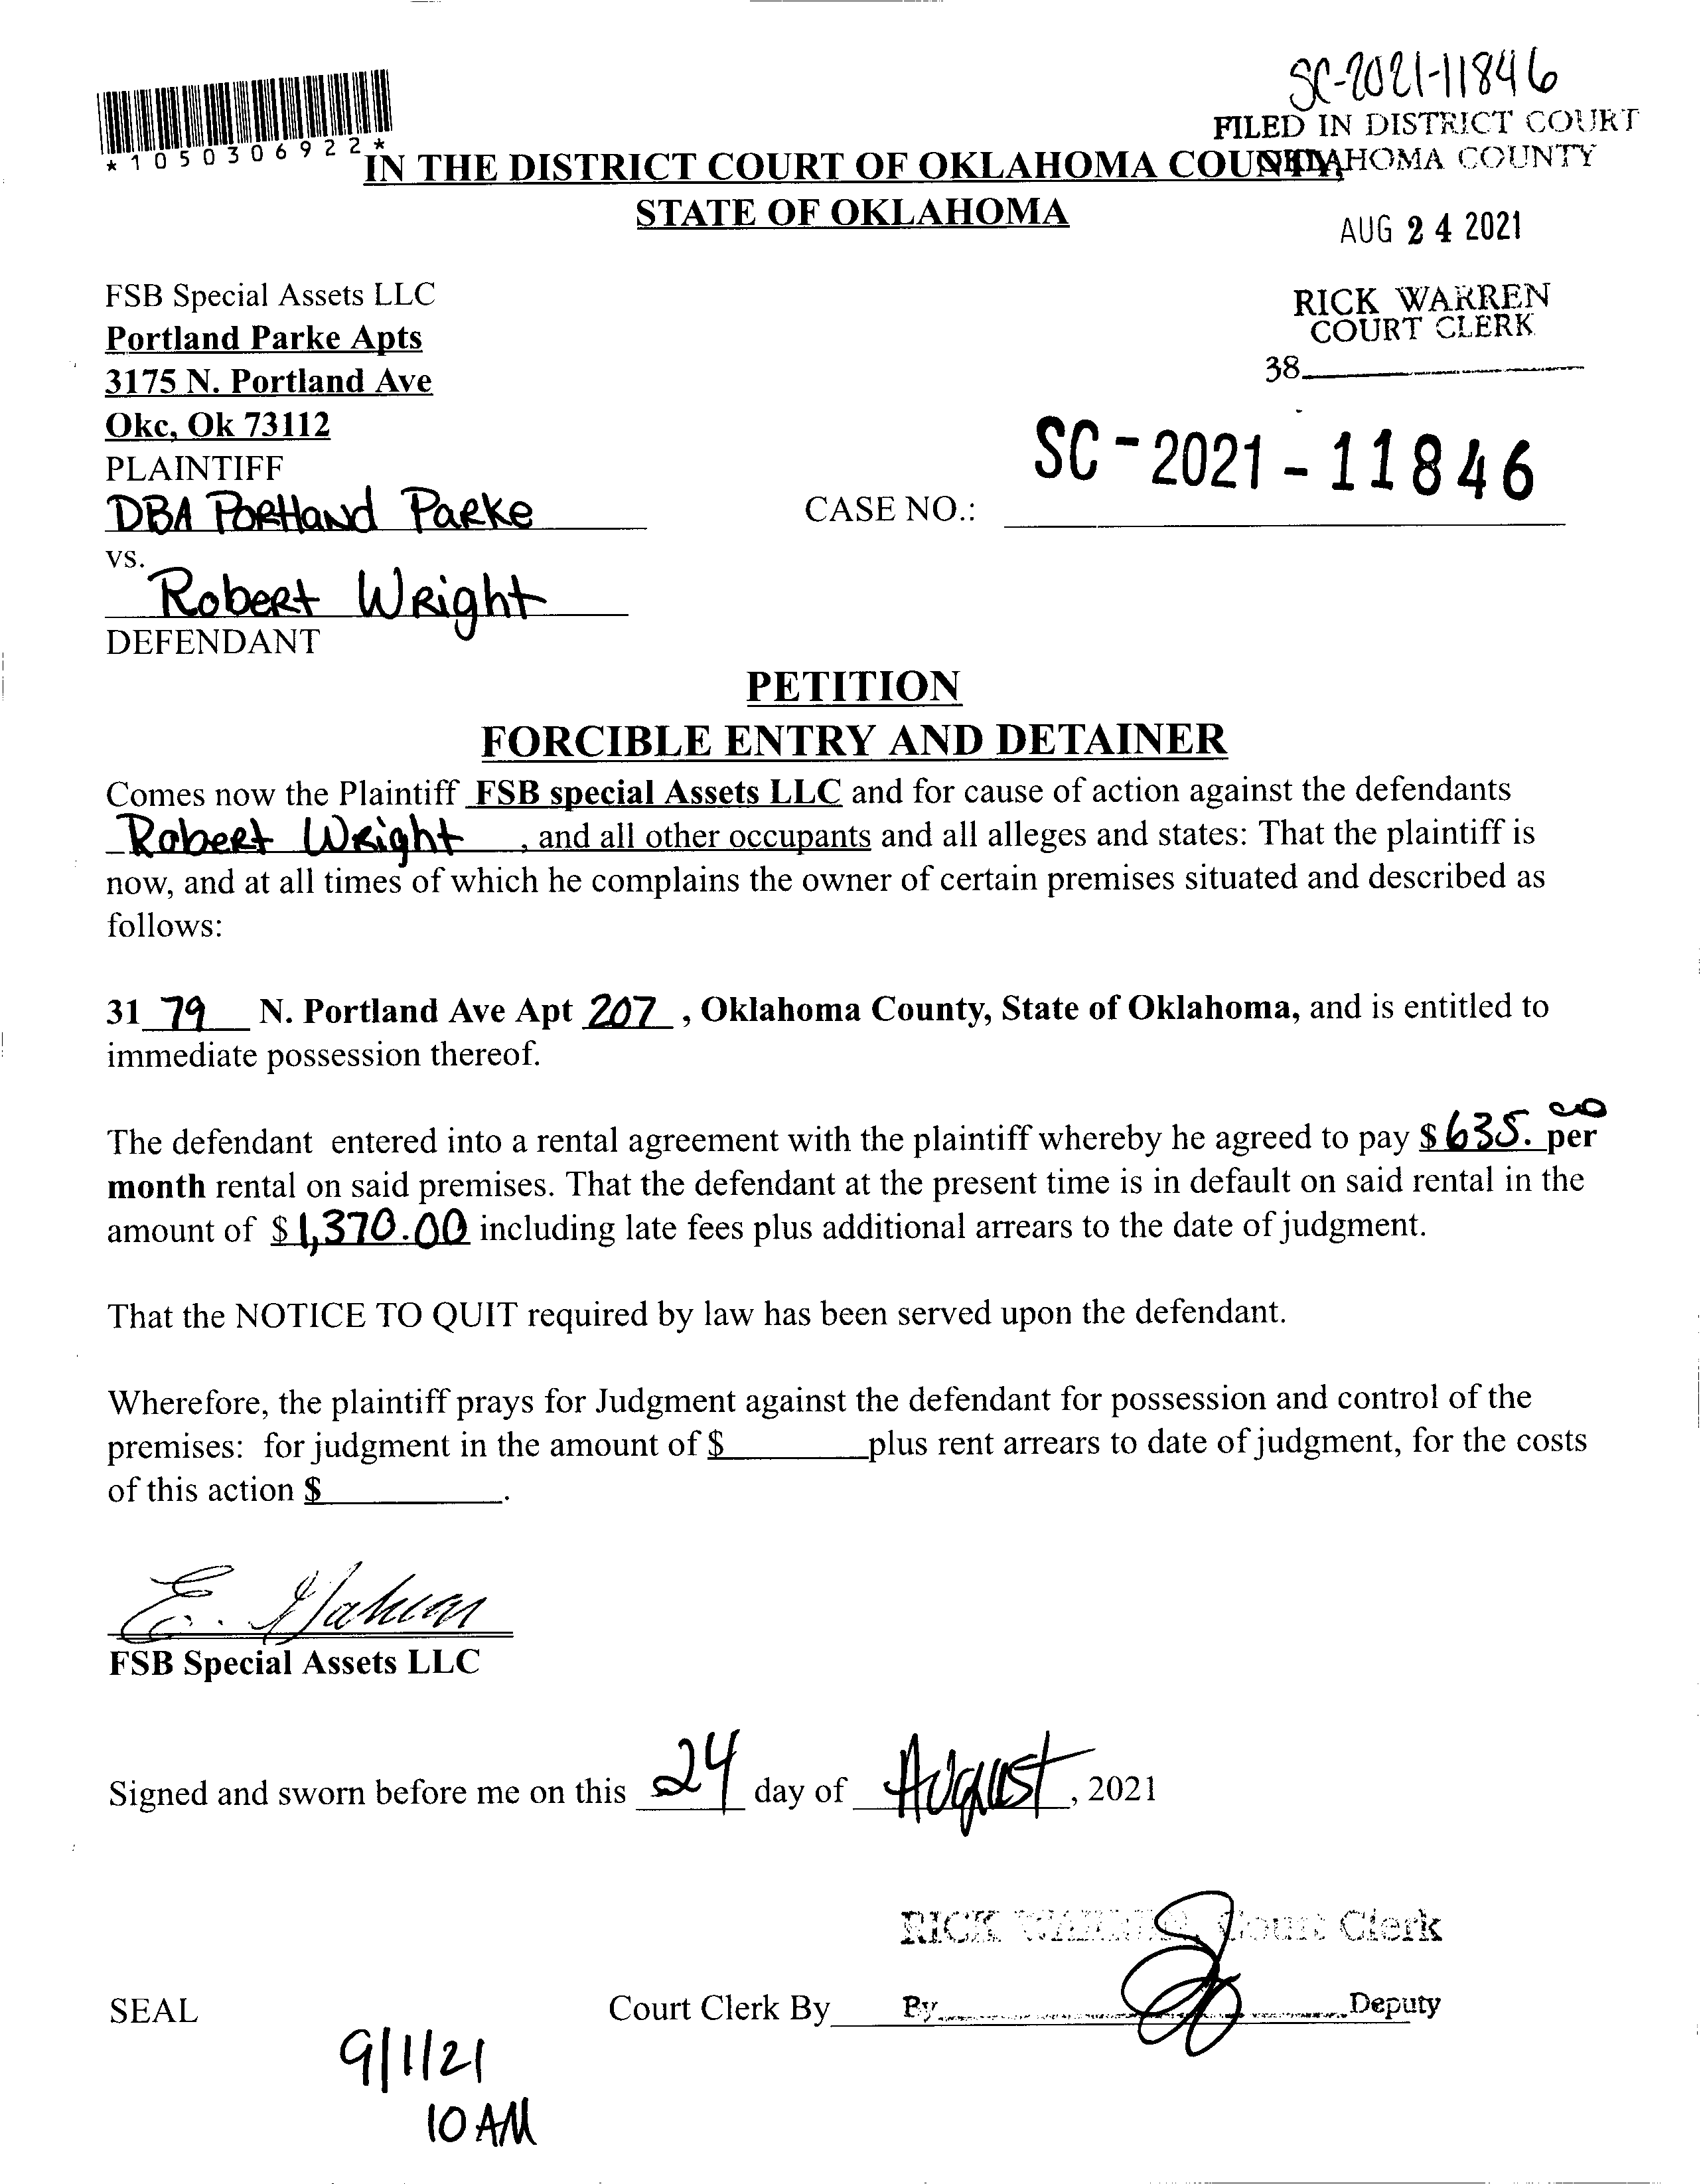 SC-2021-11846
FILED IN DISTRICT COURT
OKLAHOMA COUNTY
*1050306922*
IN THE DISTRICT COURT OF OKLAHOMA COUNTY,
STATE OF OKLAHOMA
AUG 24 2021
FSB Special Assets LLC
RICK WARREN
COURT CLERK
Portland Parke Apts
38
3175 N. Portland Ave
Okc, Ok 73112
PLAINTIFF
DBA Portland Parke
CASE NO.: SC-2021-11846
vs.
Robert Wright
DEFENDANT
PETITION
FORCIBLE ENTRY AND DETAINER
Comes now the Plaintiff FSB special Assets LLC and for cause of action against the defendants
Robert Wright, and all other occupants and all alleges and states: That the plaintiff is
now, and at all times of which he complains the owner of certain premises situated and described as
follows:
31 79 N. Portland Ave Apt 207, Oklahoma County, State of Oklahoma, and is entitled to
immediate possession thereof.
The defendant entered into a rental agreement with the plaintiff whereby he agreed to pay $ 635.00 per
month rental on said premises. That the defendant at the present time is in default on said rental in the
amount of $ 1,370.00 including late fees plus additional arrears to the date of judgment.
That the NOTICE TO QUIT required by law has been served upon the defendant.
Wherefore, the plaintiff prays for Judgment against the defendant for possession and control of the
premises: for judgment in the amount of $ plus rent arrears to date of judgment, for the costs
of this action $ .
E.
FSB Special Assets LLC
Signed and sworn before me on this 24 day of August, 2021
RICK WARREN, Court Clerk
SEAL
Court Clerk By By Deputy
9/1/21
10 AM